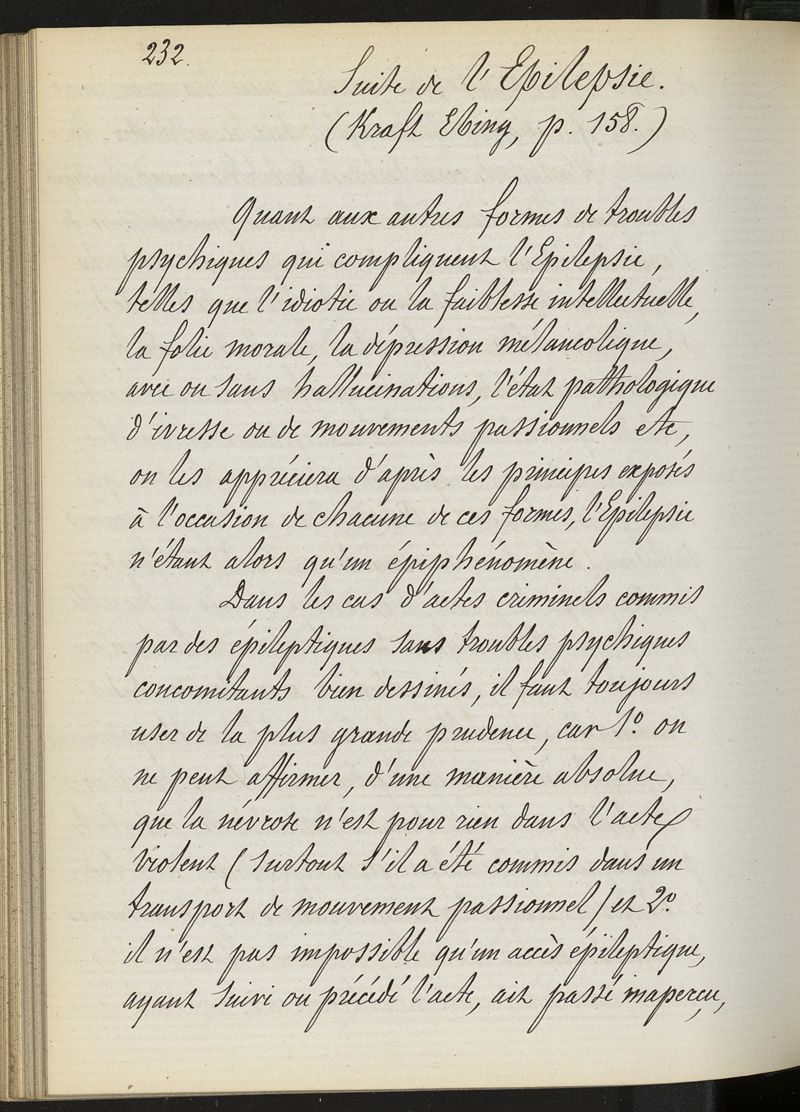 232.
Suite de l'Epilepsie.
(Kraft Ebing, p. 158.)
Quant aux autres formes de troubles
psychiques qui compliquent l'Epilepsie,
telles que l'idiotie ou la faiblesse intellectuelle,
la folie morale, la dépression mélancolique,
avec ou sans hallucinations, l'état pathologique
d'ivresse ou de mouvements passionnels etc,
on les appréciera d'après les principes exposés
à l'occasion de chacune de ces formes, l'Epilepsie
n'étant alors qu'un épiphénomène.
Dans les cas d'actes criminels commis
par des épileptiques sans troubles psychiques
concomitants bien dessinés, il faut toujours
user de la plus grande prudence, car 1º. on
ne peut affirmer, d'une manière absolue,
que la névrose n'est pour rien dans l'acte
violent (surtout s'il a été commis dans un
transport de mouvement passionnel) et 2º.
il n'est pas impossible qu'un accès épileptique,
ayant suivi ou précédé l'acte, ait passé inaperçu,